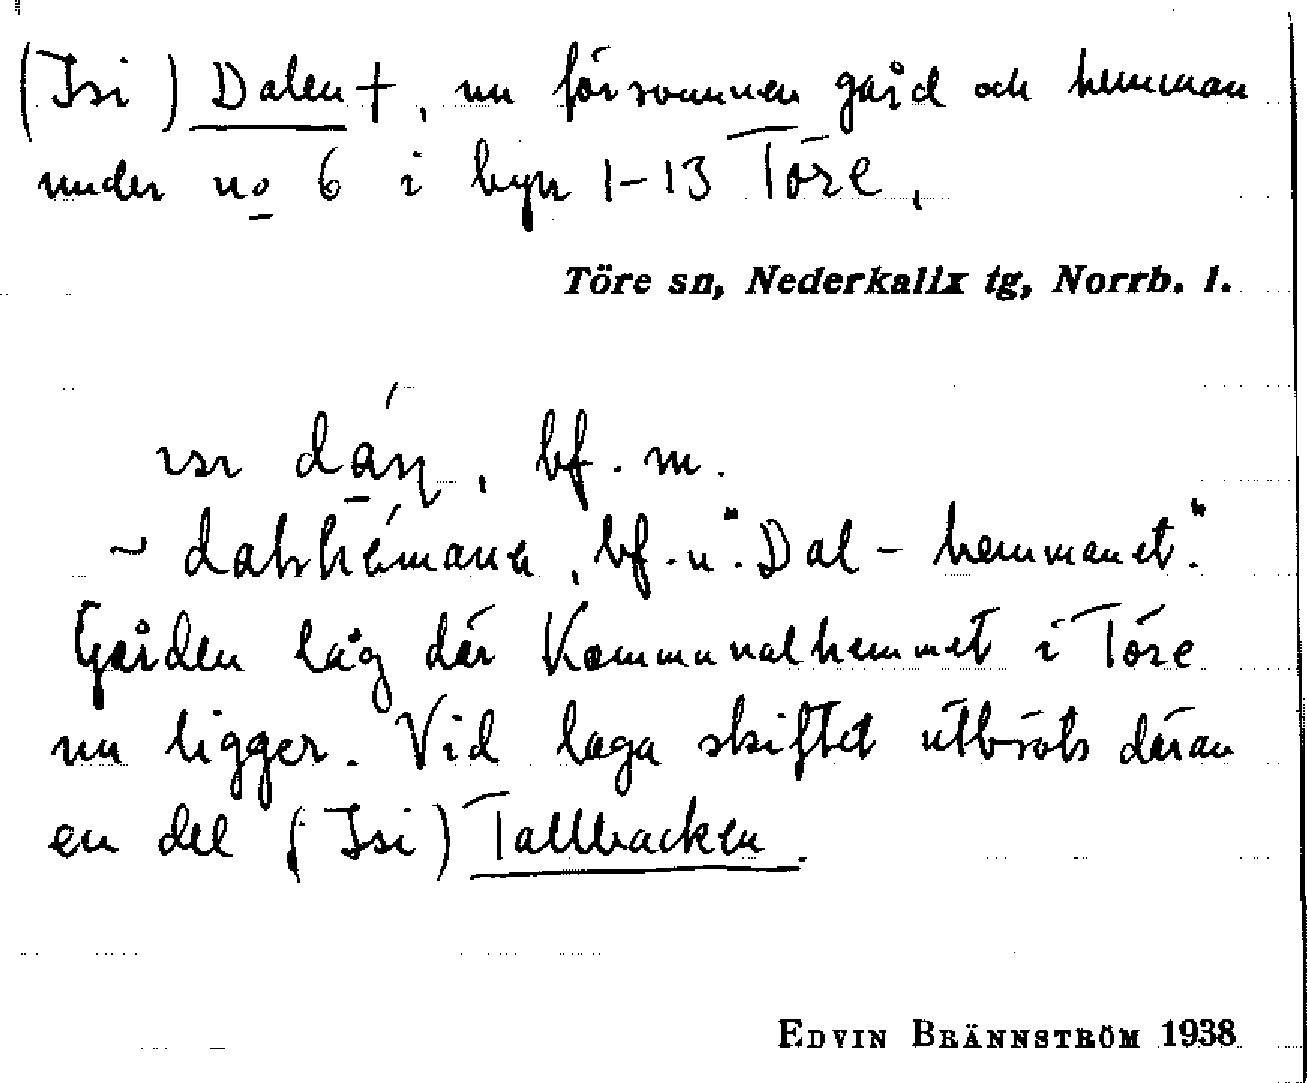 (Isi) Dalen †, nu försvunnen gård och hemman
under no 6 i byn 1-13 Töre.
Töre sn, Nederkalix tg, Norrb. l.
bf. m.
~ bf. n. "Dal-hemmanet."
Gården låg där Kommunalhemmet i Töre
nu ligger. Vid laga skiftet utbröts därav
en del (Isi) Tallbacken.
EDVIN BRÄNNSTRÖM 1938